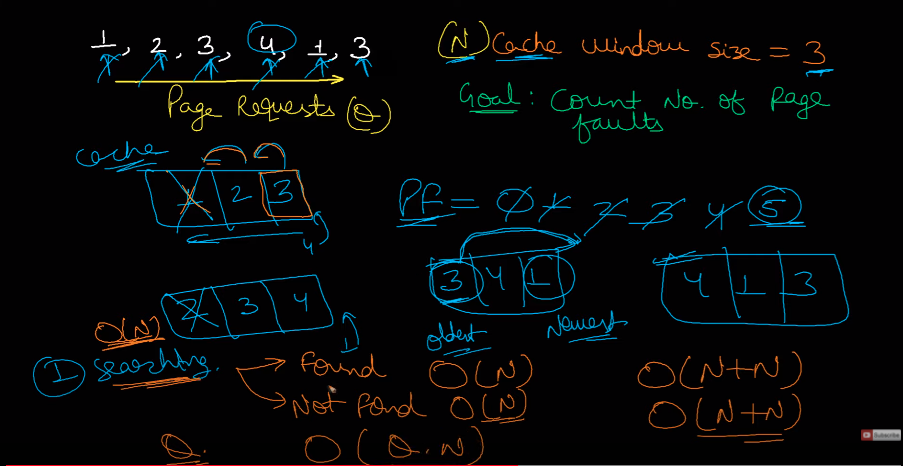 1, 2, 3, 4, 1, 3
Page Requests (Q)
(N) Cache window size = 3
Goal: Count No. of Page
faults
cache
1 2 3
4
PF = 0 1 2 3 4 5
3 4 1
oldest Newest
4 1 3
2 3 4
1
O(N)
1 Searching
Found O(N) O(N+N)
Not Fond O(N) O(N+N)
Q. O(Q.N)
Subscribe